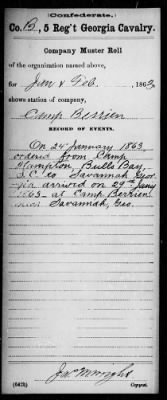 (Confederate.)
Co. B, 5 Reg't Georgia Cavalry.
Company Muster Roll
of the organization named above,
for Jan & Feb., 1863,
shows station of company,
Camp Berrien
RECORD OF EVENTS.
On 24 January 1863
ordered from Camp
Hampton, Bulls Bay,
S.C to Savannah Geor-
gia arrived on 29th Jany
1863 at Camp Berrien
near Savannah, Geo.
(642h)
Copyist.